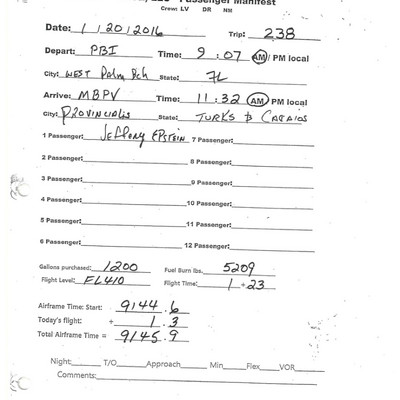 Passenger Manifest
Crew: LV DR NM
Date: 1/20/2016 Trip: 238
Depart: PBI Time: 9:07 AM/ PM local
City: WEST Palm Bch State: FL
Arrive: MBPV Time: 11:32 AM/ PM local
City: PROVINCIALis State: TURKS & CAICIOS
1 Passenger: JEFFERY EPSTEIN 7 Passenger:
2 Passenger: 8 Passenger:
3 Passenger: 9 Passenger:
4 Passenger: 10 Passenger:
5 Passenger: 11 Passenger:
6 Passenger: 12 Passenger:
Gallons purchased: 1200 Fuel Burn lbs. 5209
Flight Level: FL410 Flight Time: 1+23
Airframe Time: Start: 9144.6
Today's flight: + 1.3
Total Airframe Time = 9145.9
Night: T/O Approach Min Flex VOR
Comments: